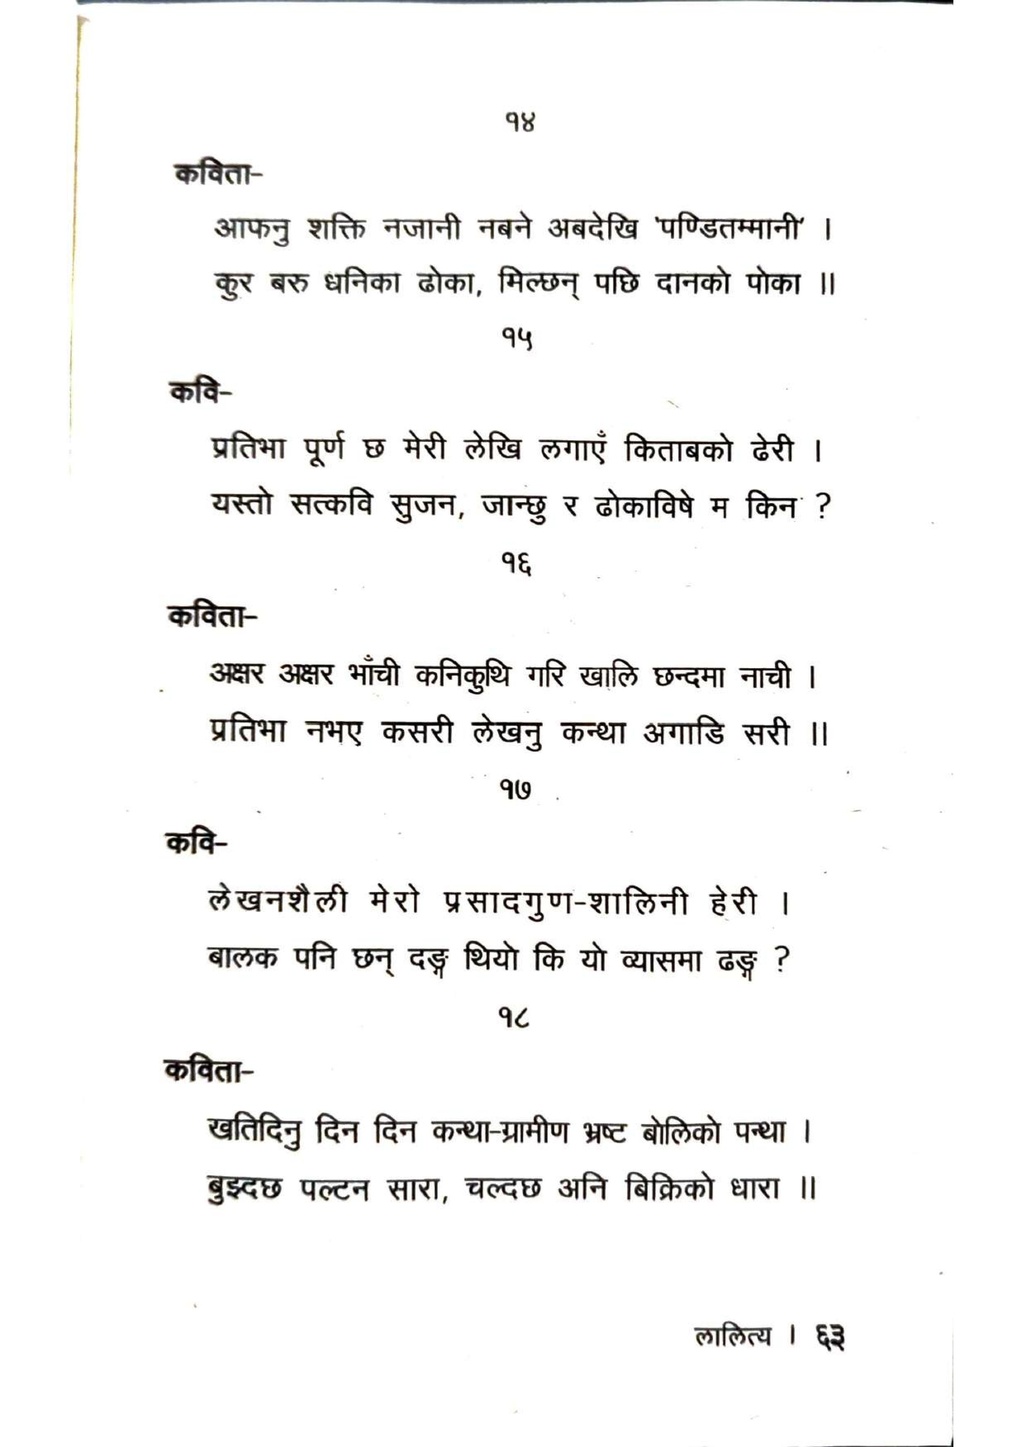 १४
कविता-
आफनु शक्ति नजानी नबने अबदेखि 'पण्डितम्मानी' ।
कुर बरु धनिका ढोका, मिल्छन् पछि दानको पोका ॥
१५
कवि-
प्रतिभा पूर्ण छ मेरी लेखि लगाएँ किताबको ढेरी ।
यस्तो सत्कवि सुजन, जान्छु र ढोकाविषे म किन ?
१६
कविता-
अक्षर अक्षर भाँची कनिकुथि गरि खालि छन्दमा नाची ।
प्रतिभा नभए कसरी लेखनु कन्था अगाडि सरी ॥
१७
कवि-
लेखनशैली मेरो प्रसादगुण-शालिनी हेरी ।
बालक पनि छन् दङ्ग थियो कि यो व्यासमा ढङ्ग ?
१८
कविता-
खतिदिनु दिन दिन कन्था-ग्रामीण भ्रष्ट बोलिको पन्था ।
बुझ्दछ पल्टन सारा, चल्दछ अनि बिक्रिको धारा ॥
लालित्य । ६३